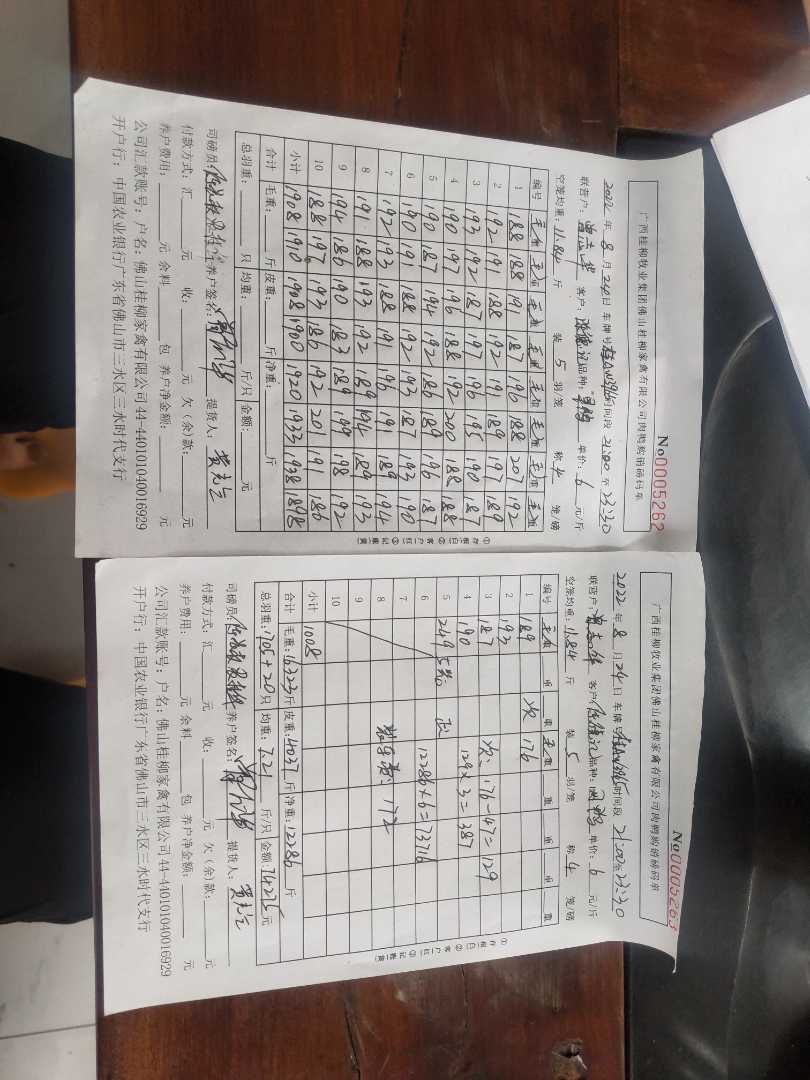 广西桂柳牧业集团佛山桂柳家禽有限公司肉鸭购销磅码单
No0005262
2022 年 8 月 24日 车牌号 时间段 21:00 至 23:30
联营户: 客户: 品种: 单价: 6 元/斤
空笼均重: 11.84 斤 装 5 羽/笼 称 4 笼/磅
编号 毛重 毛重 毛重 毛重 毛重 毛重 毛重 毛重
1 188 188 191 187 196 188 207 192
2 192 191 188 192 191 189 197 189
3 193 192 187 197 196 195 190 187
4 190 197 196 188 192 200 188 188
5 190 187 194 192 186 189 196 187
6 190 191 188 192 193 187 193 190
7 192 193 188 191 196 191 189 194
8 191 188 193 192 189 194 189 193
9 194 186 190 183 189 199 198 192
10 188 197 193 186 192 201 191 186
小计 1908 1910 1908 1900 1920 1933 1938 1898
合计 毛重: 斤 皮重: 斤 净重: 斤
总羽重: 只 均重: 斤/只 金额: 元
司磅员: 养户签名: 提货人:
付款方式: 汇 元 收: 元 欠(余)款: 元
养户费用: 元 余料 包 养户净金额: 元
公司汇款账号: 户名: 佛山桂柳家禽有限公司 44-440101040016929
开户行: 中国农业银行广东省佛山市三水区三水时代支行
①存根(白) ②客户(红) ③记账(黄)
广西桂柳牧业集团佛山桂柳家禽有限公司肉鸭购销磅码单
No0005263
2022 年 8 月 24 日 车牌号 时间段 21:00至23:30
联营户: 客户: 品种: 单价: 6 元/斤
空笼均重: 11.84 斤 装 5 羽/笼 称 4 笼/磅
编号 毛重 重 重 毛重 重 重 重 重
1 189 次 176
2 193
3 187 次: 176-47=129
4 190 129×3=387
5 249
6 12286×6=73716
7
8 172
9
10
小计 1008
合计 毛重: 16323斤 皮重: 4037斤 净重: 12286 斤
总羽重: 1705+20只 均重: 7.21 斤/只 金额: 74275元
司磅员: 养户签名: 提货人:
付款方式: 汇 元 收: 元 欠(余)款: 元
养户费用: 元 余料 包 养户净金额: 元
公司汇款账号: 户名: 佛山桂柳家禽有限公司 44-440101040016929
开户行: 中国农业银行广东省佛山市三水区三水时代支行
①存根(白) ②客户(红) ③记账(黄)